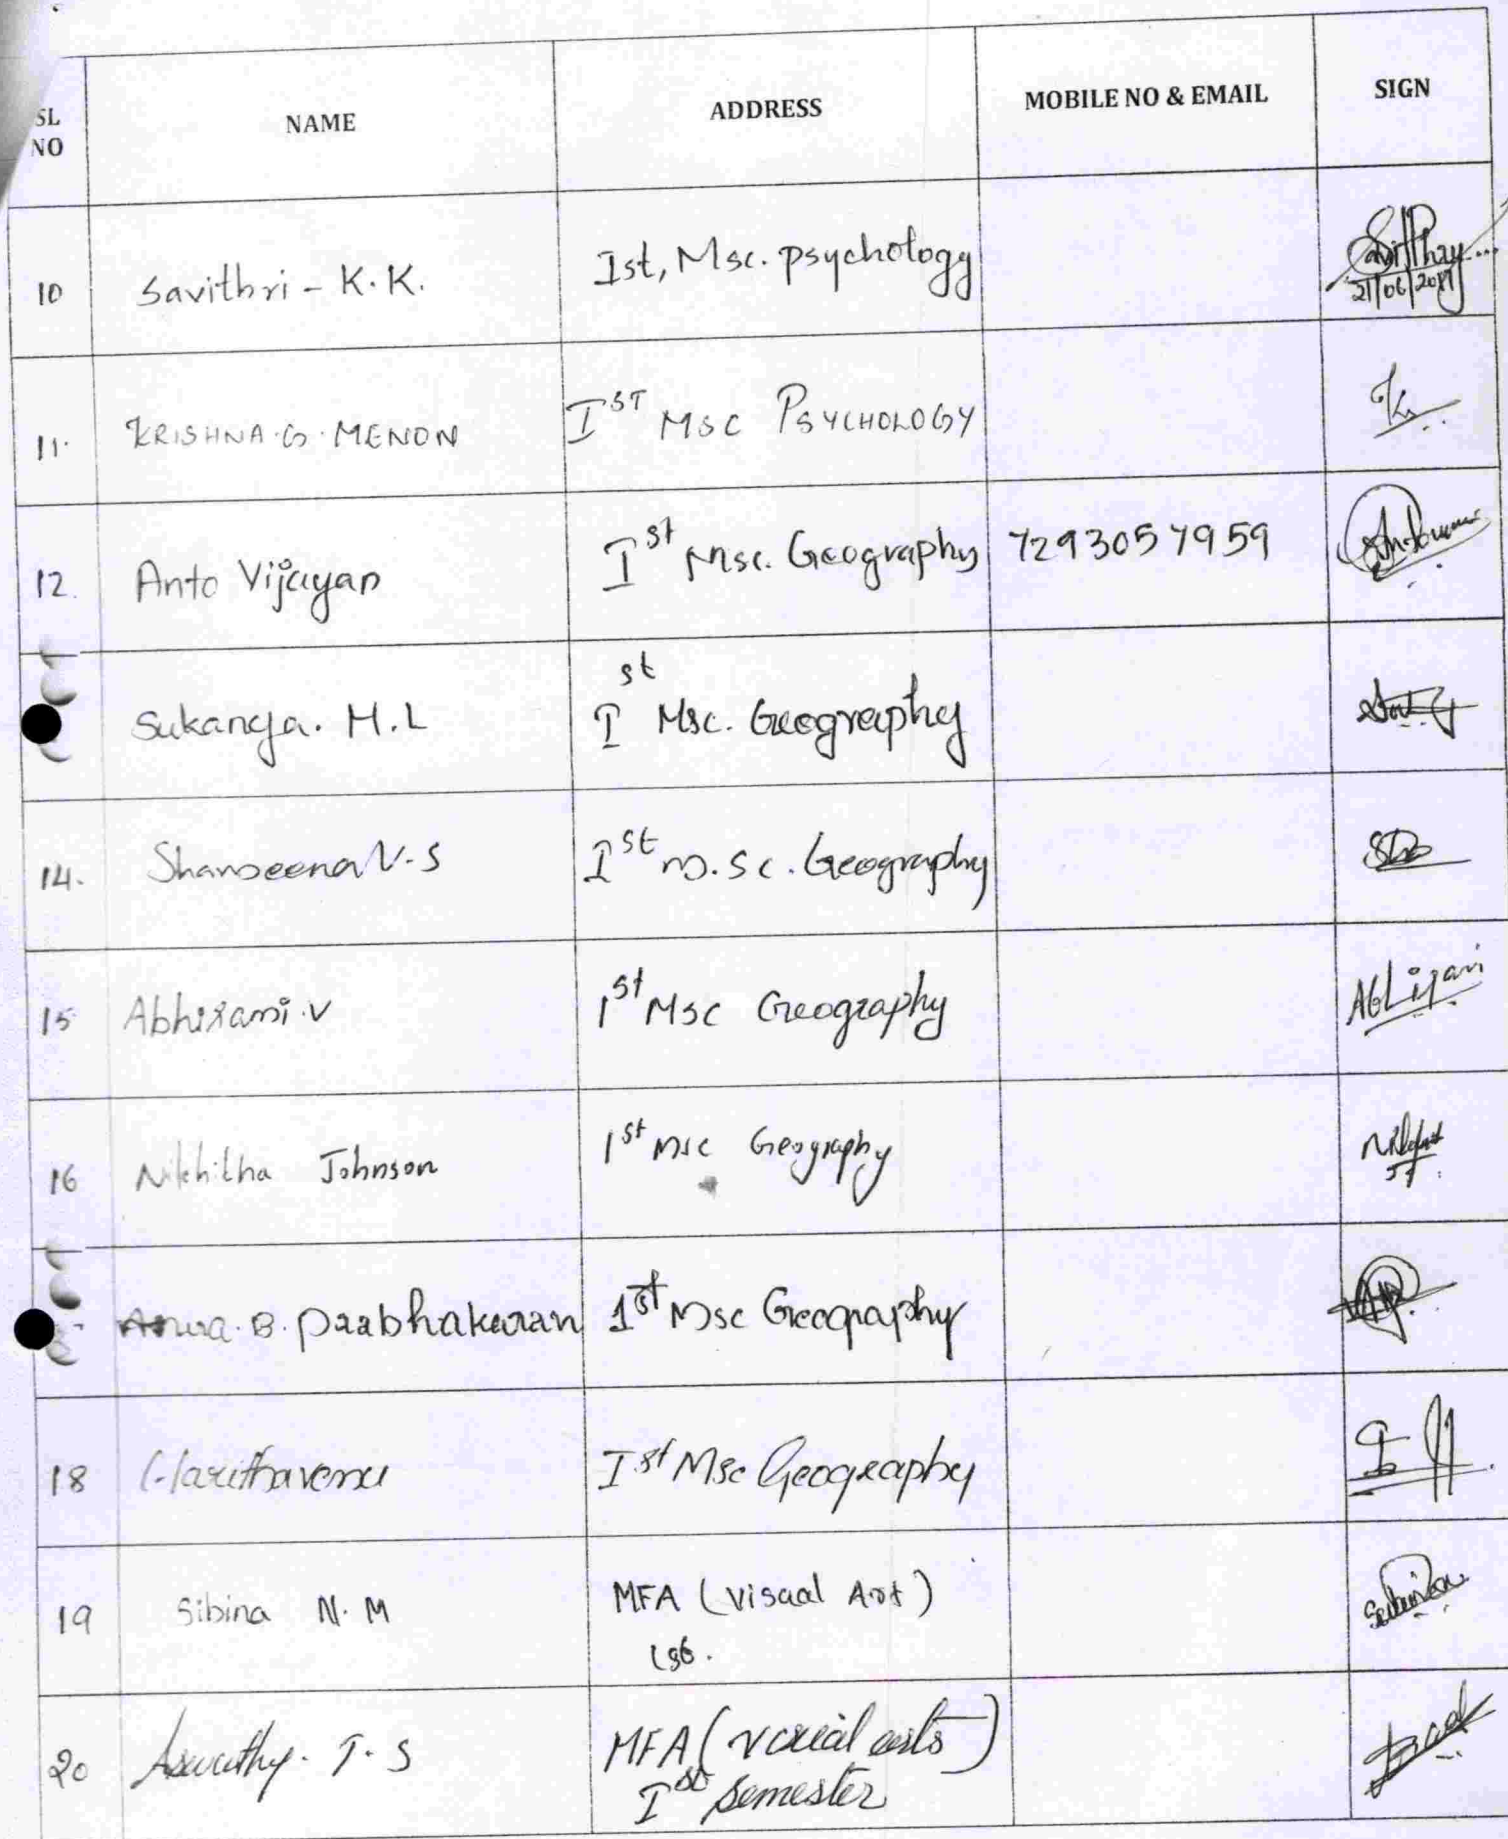 SL NO NAME ADDRESS MOBILE NO & EMAIL SIGN
10 Savithri - K.K. Ist, Msc. psychology 21/06/2019
11. KRISHNA.G.MENON I ST MSC PSYCHOLOGY
12. Anto Vijayan I st Msc. Geography 7293057959
Sukanya. M.L I st Msc. Geography
14. Shamseena V.S I st M.Sc. Geography
15 Abhirami.V 1st Msc Geography
16 Nikhitha Johnson 1st Msc Geography
B. Prabhakaran 1st Msc Geography
18 Harithavenu I st Msc Geography
19 Sibina N.M MFA (Visual Art)
1st.
20 Aswathy. T.S MFA (visual arts)
I st Semester